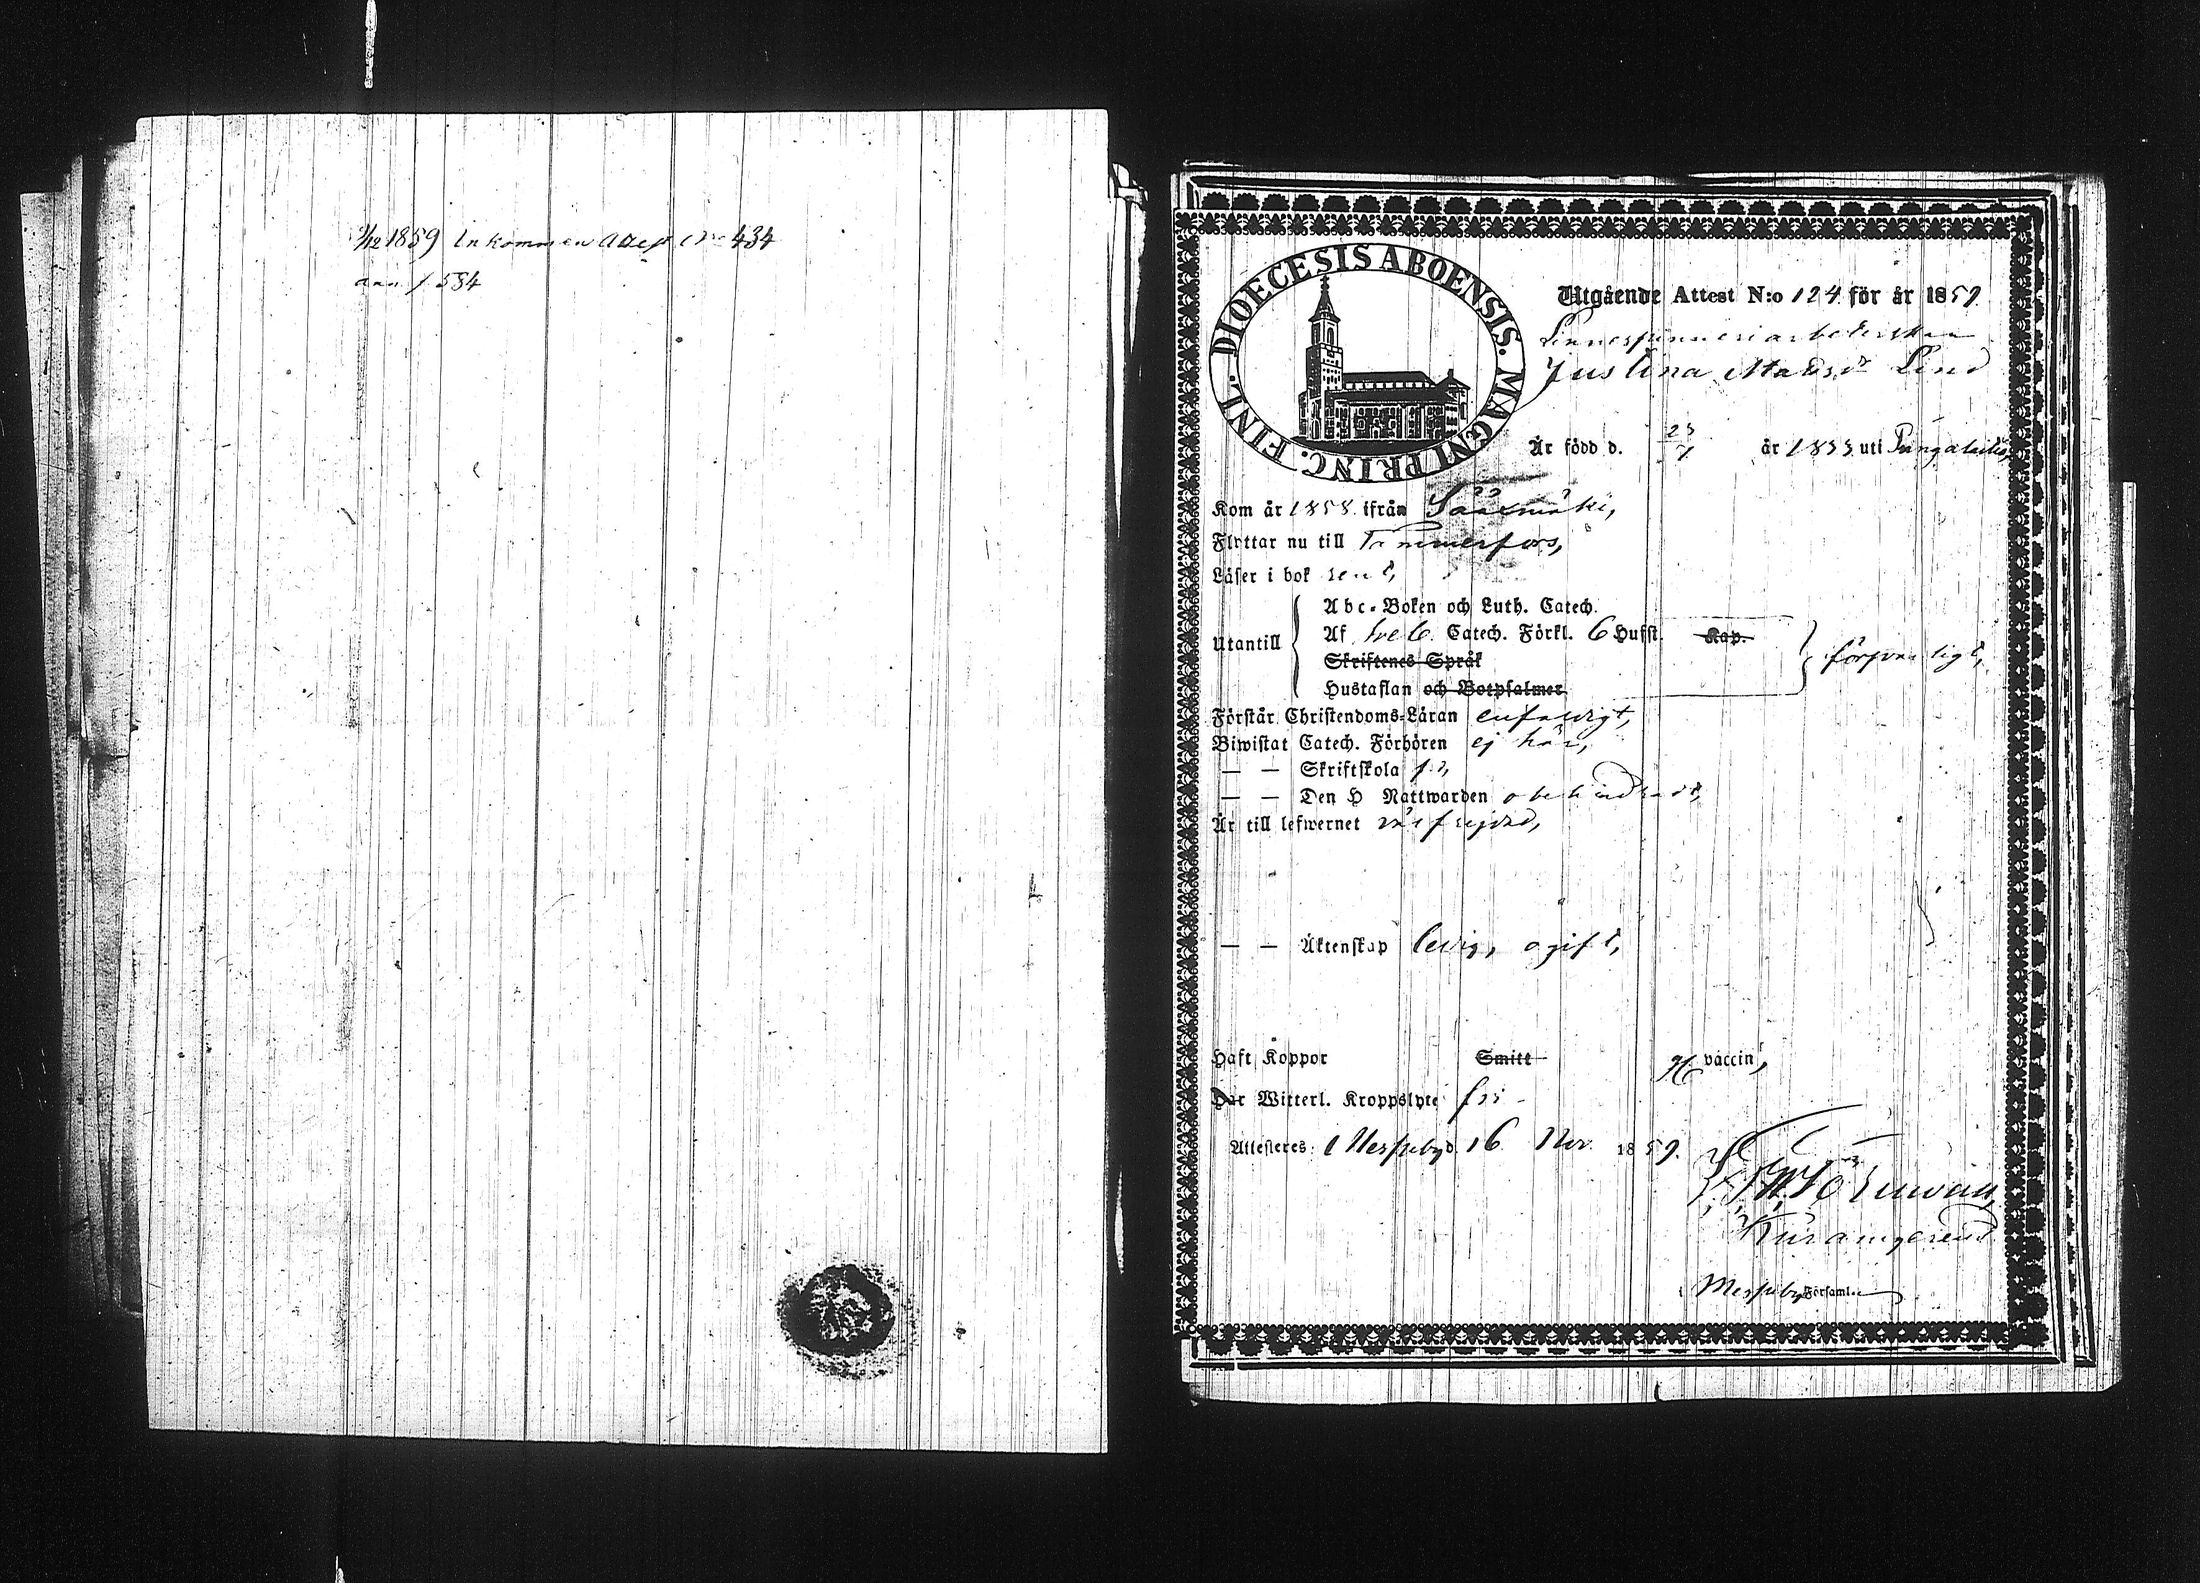 9/12 1859 Inkommen Attest No 434
ann. / 584
DIOECESIS ABOENSIS. MAGNI PRINC. FINL.
Utgående Attest N:o 124 för år 1859
Linnespinneriarbeterskan
Justina Matsdr Lind
Är född d. 23/7 år 1833 uti Pungalaitio,
Kom år 1858 ifrån Sääxmäki,
Flyttar nu till Tammerfors,
Läser i bok rent,
Abc-Boken och Luth. Catech.
Utantill Af Sveb. Catech. Förkl. 6 Hufst. Kap. försvarligt,
Skriftenes Språk
Hustaflan och Botpsalmer
Förstår Christendoms-Läran enfaldigt,
Biwistat Catech. Förhören ej här,
— — Skriftskola
— — Den H Nattwarden obehindrad,
Är till lefwernet välfrejdad,
— — Äktenskap ledig, ogift,
Haft Koppor Smitt H. vaccin,
Har Witterl. Kroppslyte fri
Attesteres i Messuby d. 16 Nov. 1859.
Kyrkoherde
Messuby Församl.